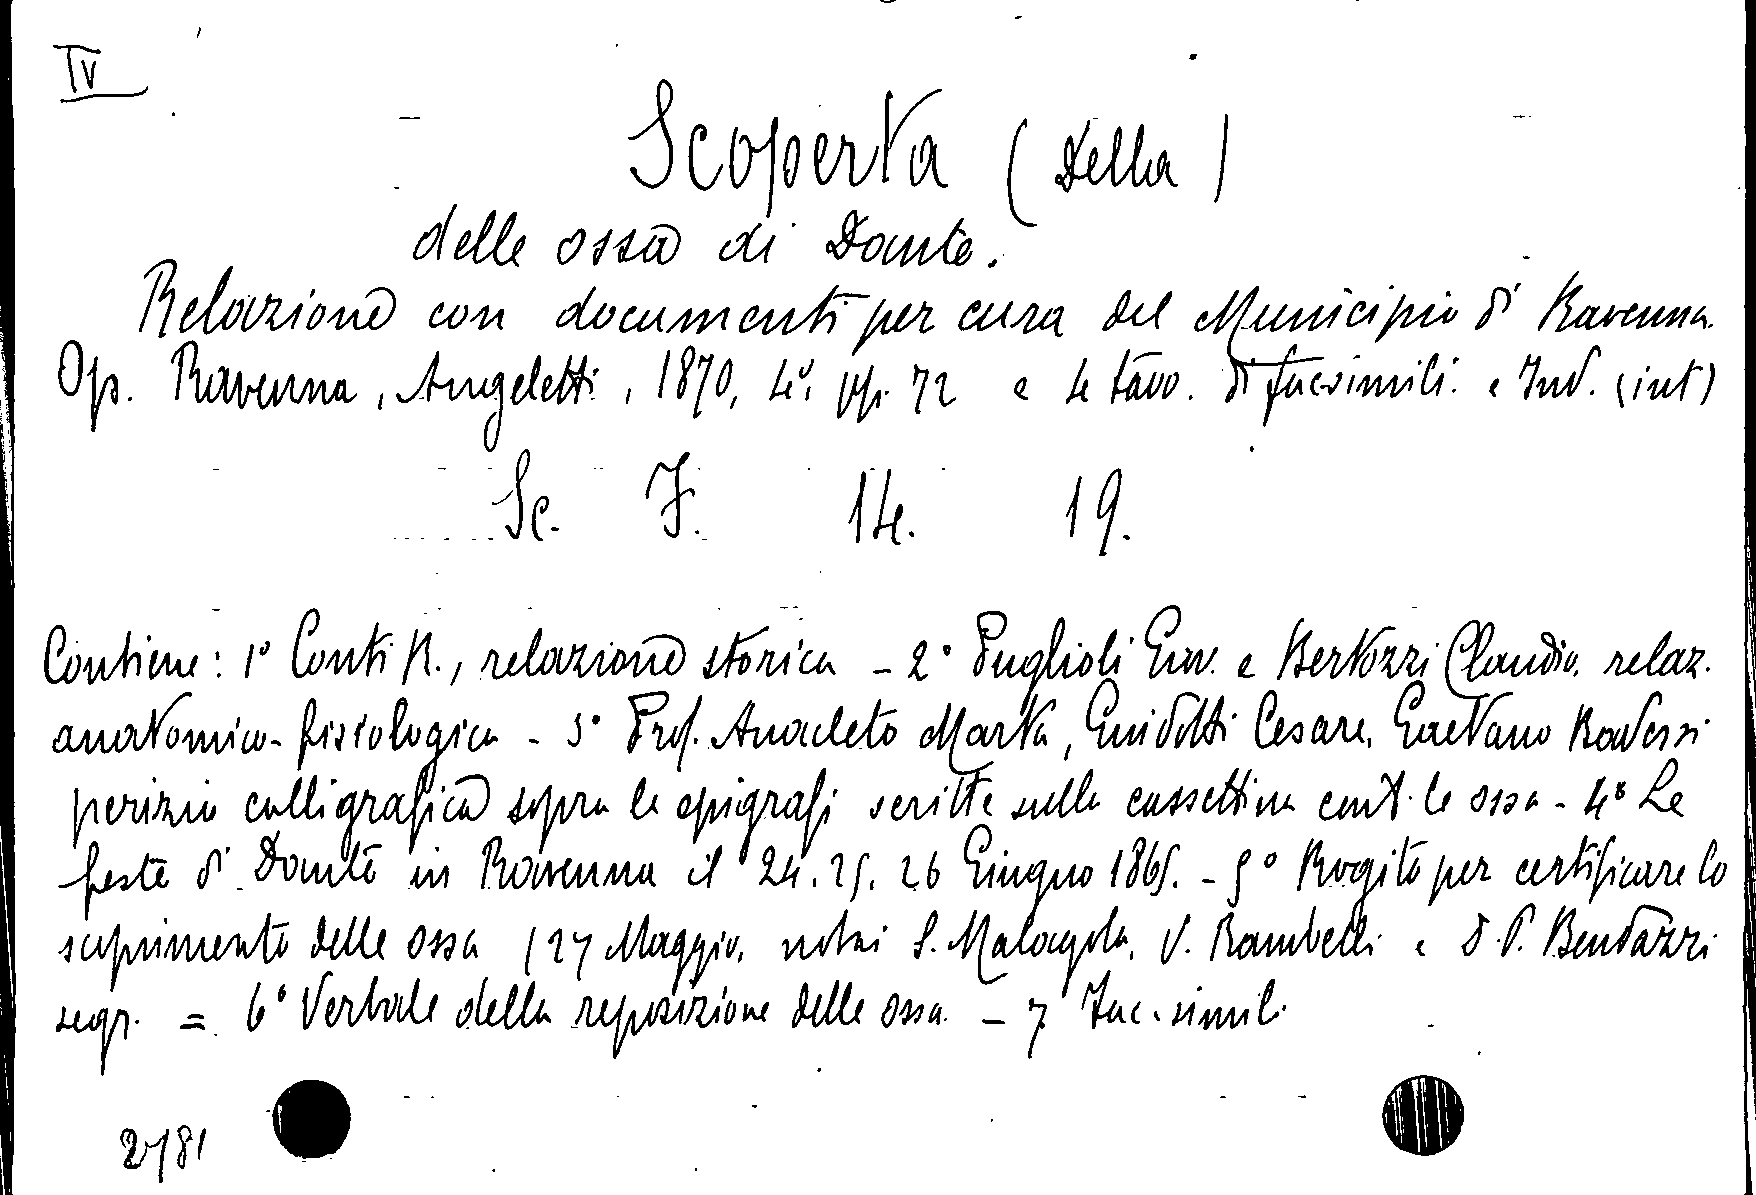 IV
Scoperta (Della)
delle ossa di Dante.
Relazione con documenti per cura del Municipio di Ravenna.
Op. Ravenna, Angeletti, 1870, 4°, pp. 72 e 4 tavo. di facsimili. e Ind. (int)
Sc. F. 14. 19.
Contiene: 1° Conti R., relazione storica - 2° Puglioli Giov. e Bertozzi Claudio. relaz.
anatomico-fisiologica - 3° Prof. Anacleto Marta, Guidotti Cesare, Gaetano Badessi
perizia calligrafica sopra le epigrafi scritte sulla cassettina cont. le ossa - 4° Le
feste di Dante in Ravenna il 24. 25. 26 Giugno 1865. - 5° Rogito per certificare lo
scoprimento delle ossa (27 Maggio, notai S. Malagola, V. Rambelli e d. P. Bendazzi
segr. = 6° Verbale della reposizione delle ossa - 7 Fac-simili
2781